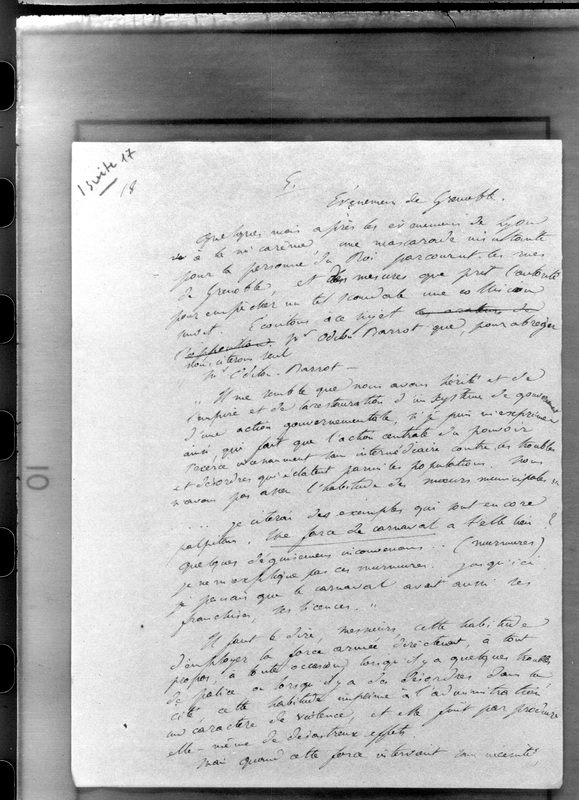 1 suite 17
18
5.
Evénemens de Grenoble.
Quelques mois après les évènemens de Lyon
à la mi carême une mascarade insultante
pour la personne du Roi parcourut les rues
de Grenoble et des mesures que prit l'autorité
pour empêcher un tel scandale une collision
naquit. Ecoutons à ce sujet les orateurs de
l'opposition. Mr Odilon Barrot que, pour abréger
nous citerons seul
Mr Odilon-Barrot —
„ Il me semble que nous avons hérité et de
l'empire et de la restauration d'un système de gouvernement
d'une action gouvernementale, si je puis m'exprimer
ainsi, qui fait que l'action centrale du pouvoir
s'exerce sans intermédiaire contre les troubles
et désordres qui éclatent parmi les populations. Nous
n'avons pas assez l'habitude des mœurs municipales „
... je citerai des exemples qui sont encore
palpitans. Une farce de carnaval a t-elle lieu ?
quelques déguisemens inconvenans.. (murmures)
je ne m'explique pas ces murmures. jusqu'ici
je pensais que le carnaval avait aussi ses
franchises, ses licences. „
Il faut le dire, messieurs cette habitude
d'employer la force armée directement, à tout
propos, à toute occasion, lorsqu'il y a quelques troubles
de police ou lorsqu'il y a des désordres dans une
cité cette habitude imprime à l'administration
un caractère de violence, et elle finit par produire
elle-même de désastreux effets.
Mais quand cette force intervient sans nécessité,